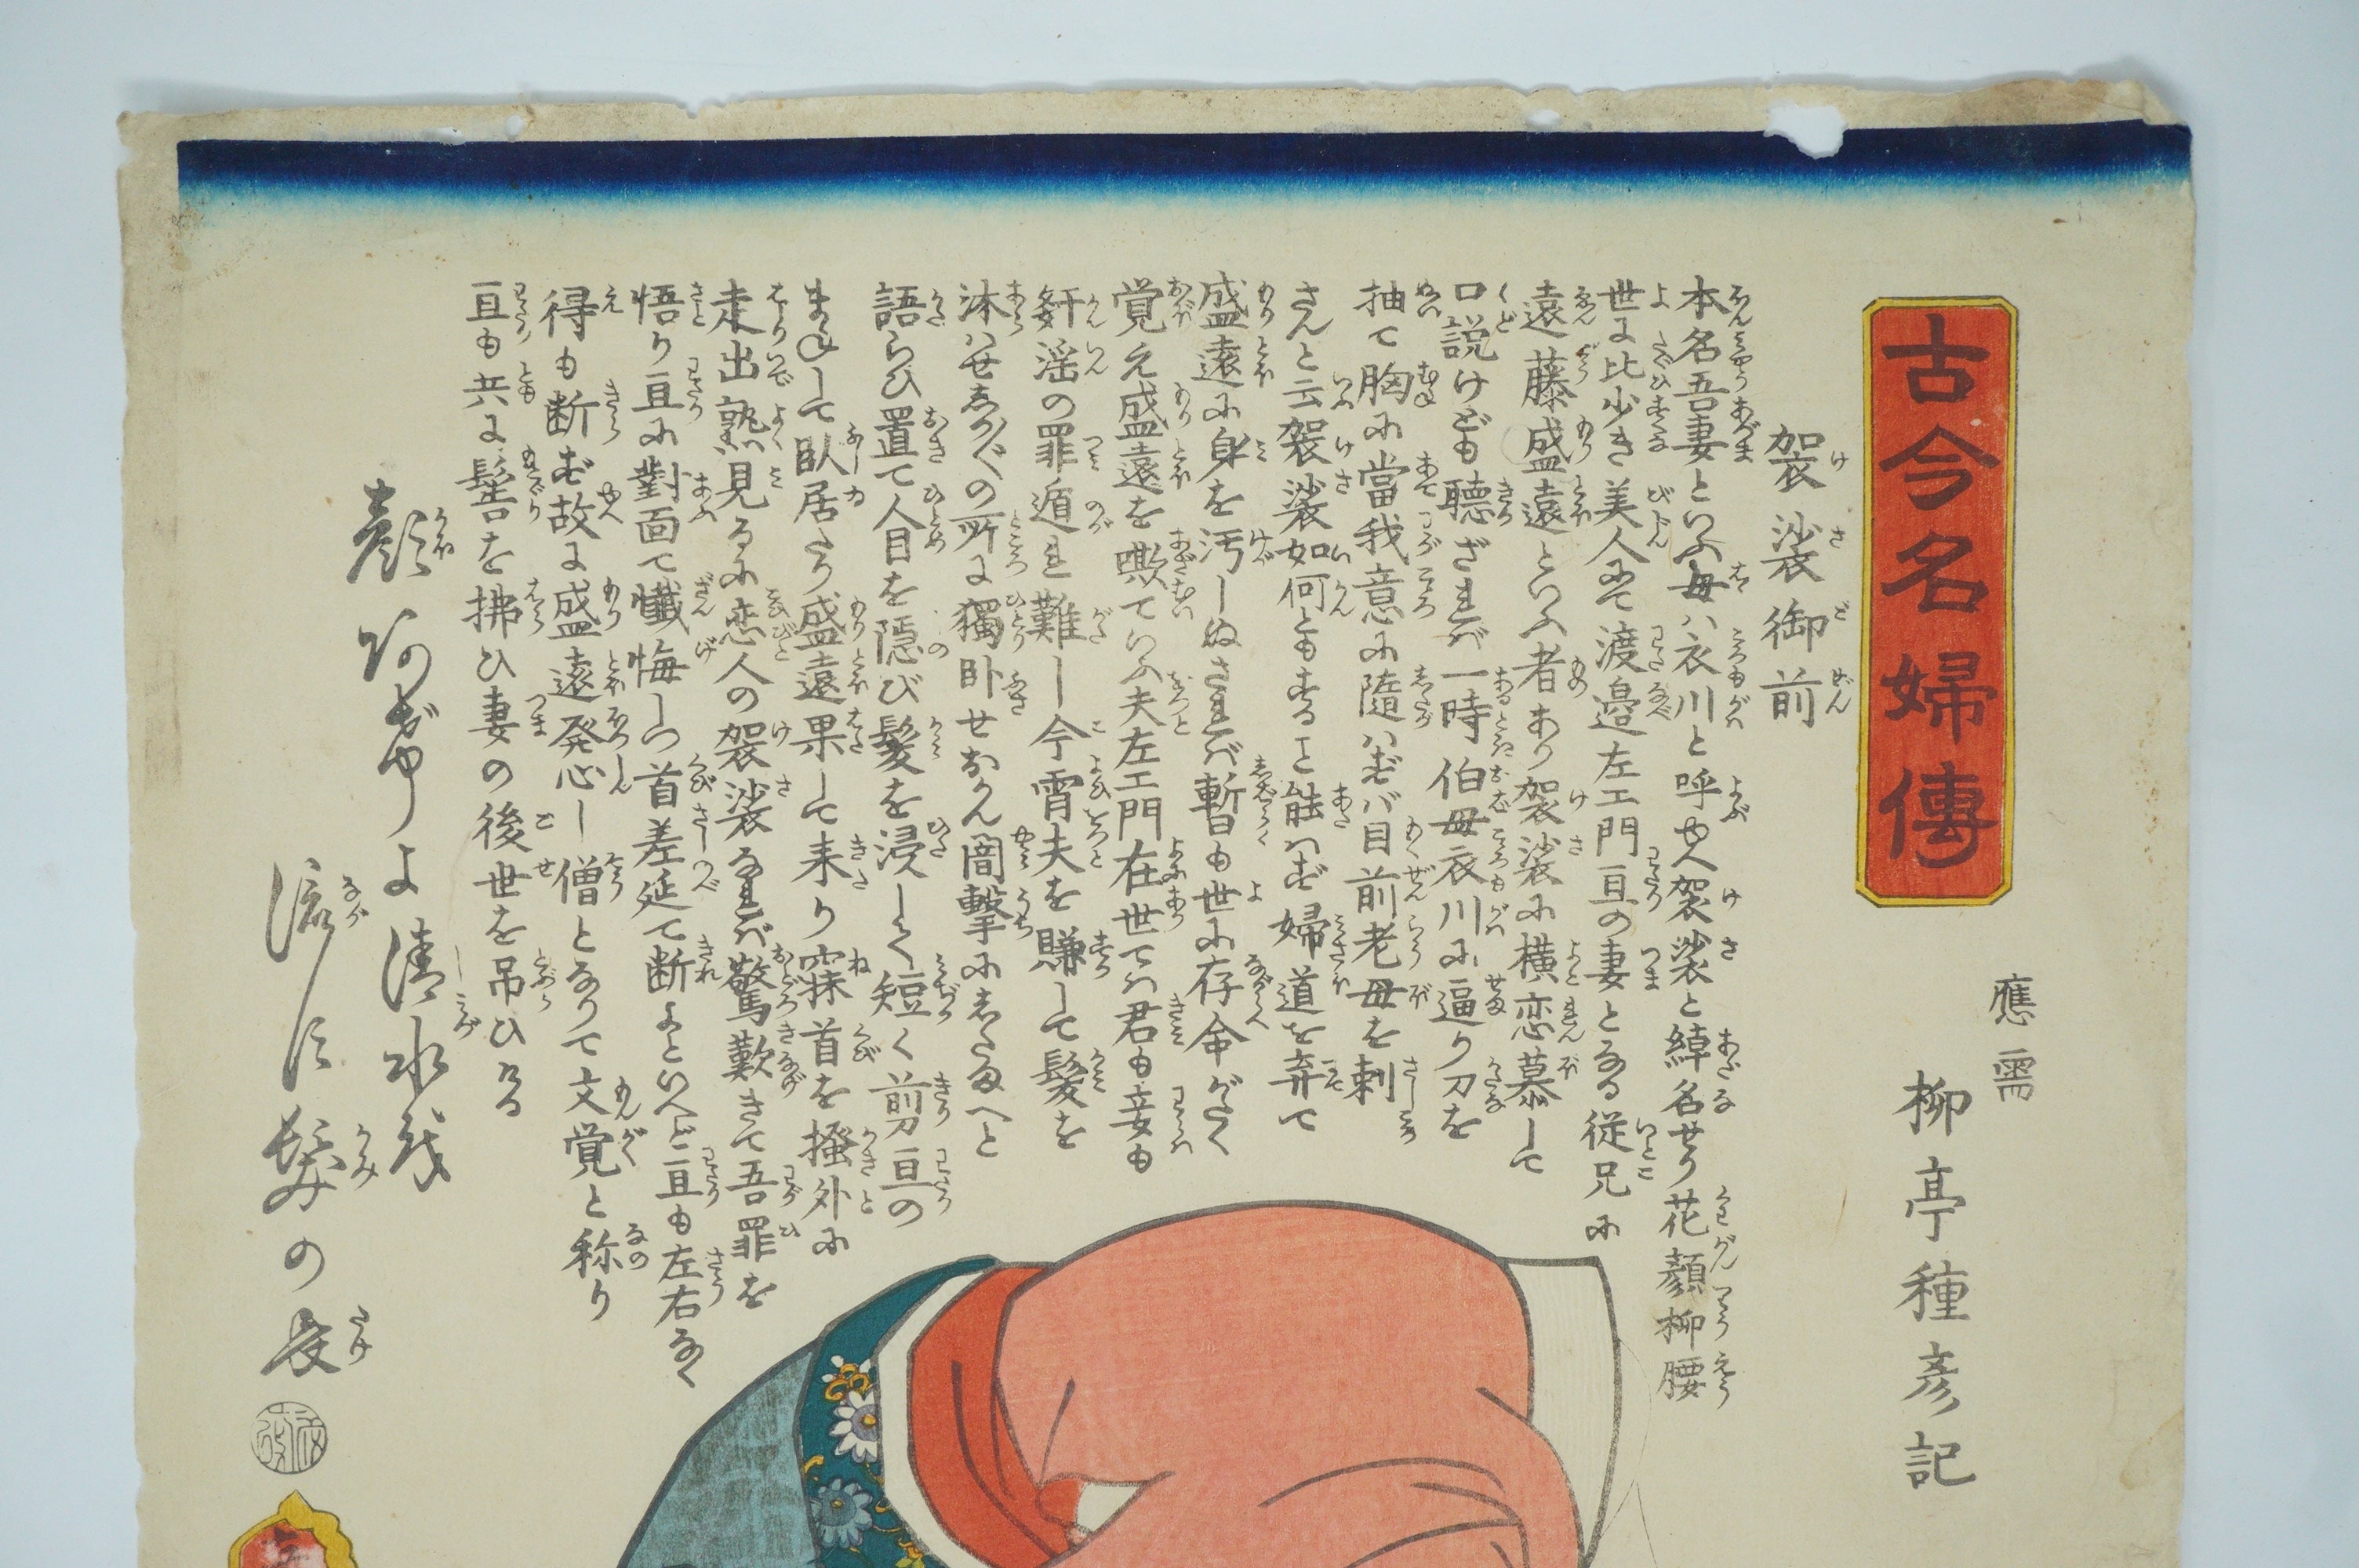 古今名婦傳
應需
柳亭種彦記
袈裟御前
本名吾妻といふ母ハ衣川と呼ゆへ袈裟と綽名せり花顔柳腰
世に比少き美人にて渡邉左エ門亘の妻となる従兄に
遠藤盛遠といふ者あり袈裟に横恋慕して
口説けども聴ざれバ一時伯母衣川に逼り刀を
抽て胸に當我意に随ハずバ目前老母を刺
さんと云袈裟如何ともすること能ハず婦道を弃て
盛遠に身を汚しぬされバ暫も世に存命がたく
覚え盛遠を欺ていふ夫左エ門在世てハ君も妾も
奸淫の罪遁れ難し今宵夫を賺して髪を
沐ハせあれ〳〵の所に獨卧せおかん闇撃にしたまへと
語らひ置て人目を隠び髪を浸して短く剪亘の
まねして臥居たり盛遠果して来り寐首を掻外に
走出熟見るに恋人の袈裟なれバ驚歎きて吾罪を
悟り亘に對面て懺悔しつ首差延て断よといへど亘も左右なく
得も断ず故に盛遠発心し僧となりて文覚と称り
亘も共に髻を拂ひ妻の後世を吊ひける
顔
よ清水
流
髪の長